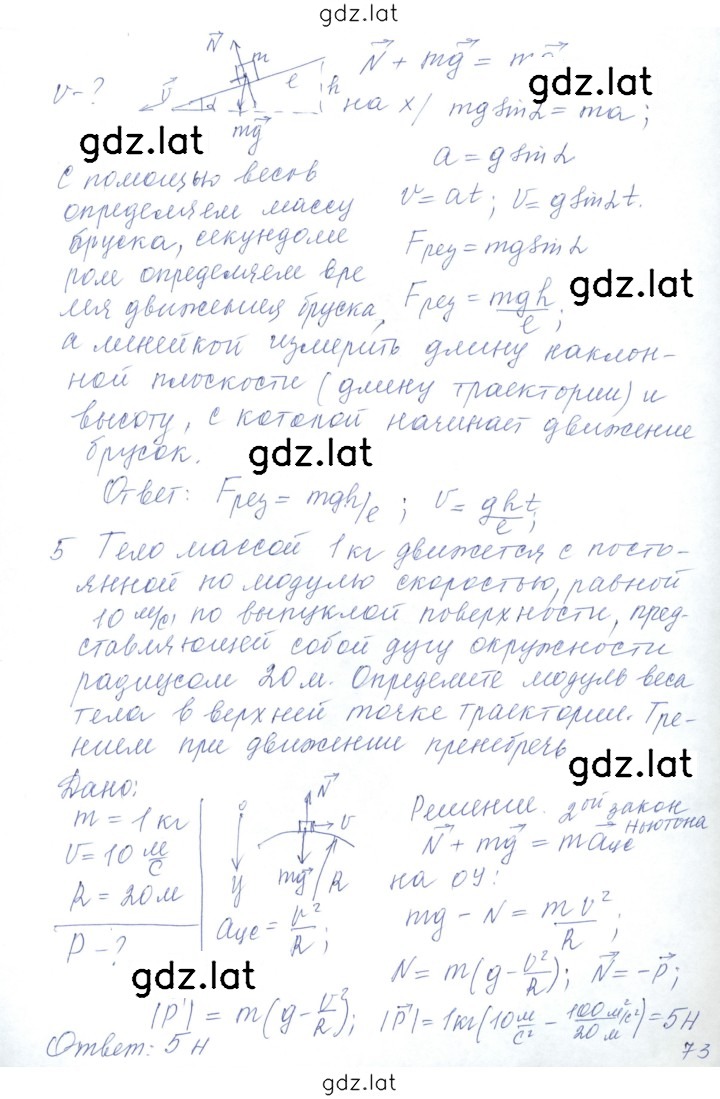 gdz.lat
N⃗ m
N⃗ + mg⃗ = m
v - ? v⃗ α l h
gdz.lat
на x/ mg sinα = ma;
mg⃗
gdz.lat
a = g sinα
С помощью весов
v = at; v = g sinα t.
определяем массу
бруска, секундоме
Fрез = mg sinα
ром определяем вре
gdz.lat
мя движения бруска,
Fрез = mgh/l;
а линейкой измерить длину наклон-
ной плоскости (длину траектории) и
высоту, с которой начинает движение
брусок.
gdz.lat
Ответ: Fрез = mgh/l; v = ght/l;
5 Тело массой 1 кг движется с посто-
янной по модулю скоростью, равной
10 м/с, по выпуклой поверхности, пред-
ставляющей собой дугу окружности
радиусом 20 м. Определите модуль веса
тела в верхней точке траектории. Тре-
нием при движении пренебречь
gdz.lat
Дано:
m = 1 кг
v = 10 м/с
R = 20 м
P - ?
N⃗ v
y mg⃗ R
aцс = v²/R;
Решение. 2ой закон Ньютона
N⃗ + mg⃗ = ma⃗цс
на OY:
mg - N = mv²/R;
gdz.lat
N = m(g - v²/R); N⃗ = -P⃗;
|P⃗| = m(g - v²/R); |P⃗| = 1кг(10 м/с² - 100 м²/с²/20 м) = 5 Н
Ответ: 5 Н
73
gdz.lat